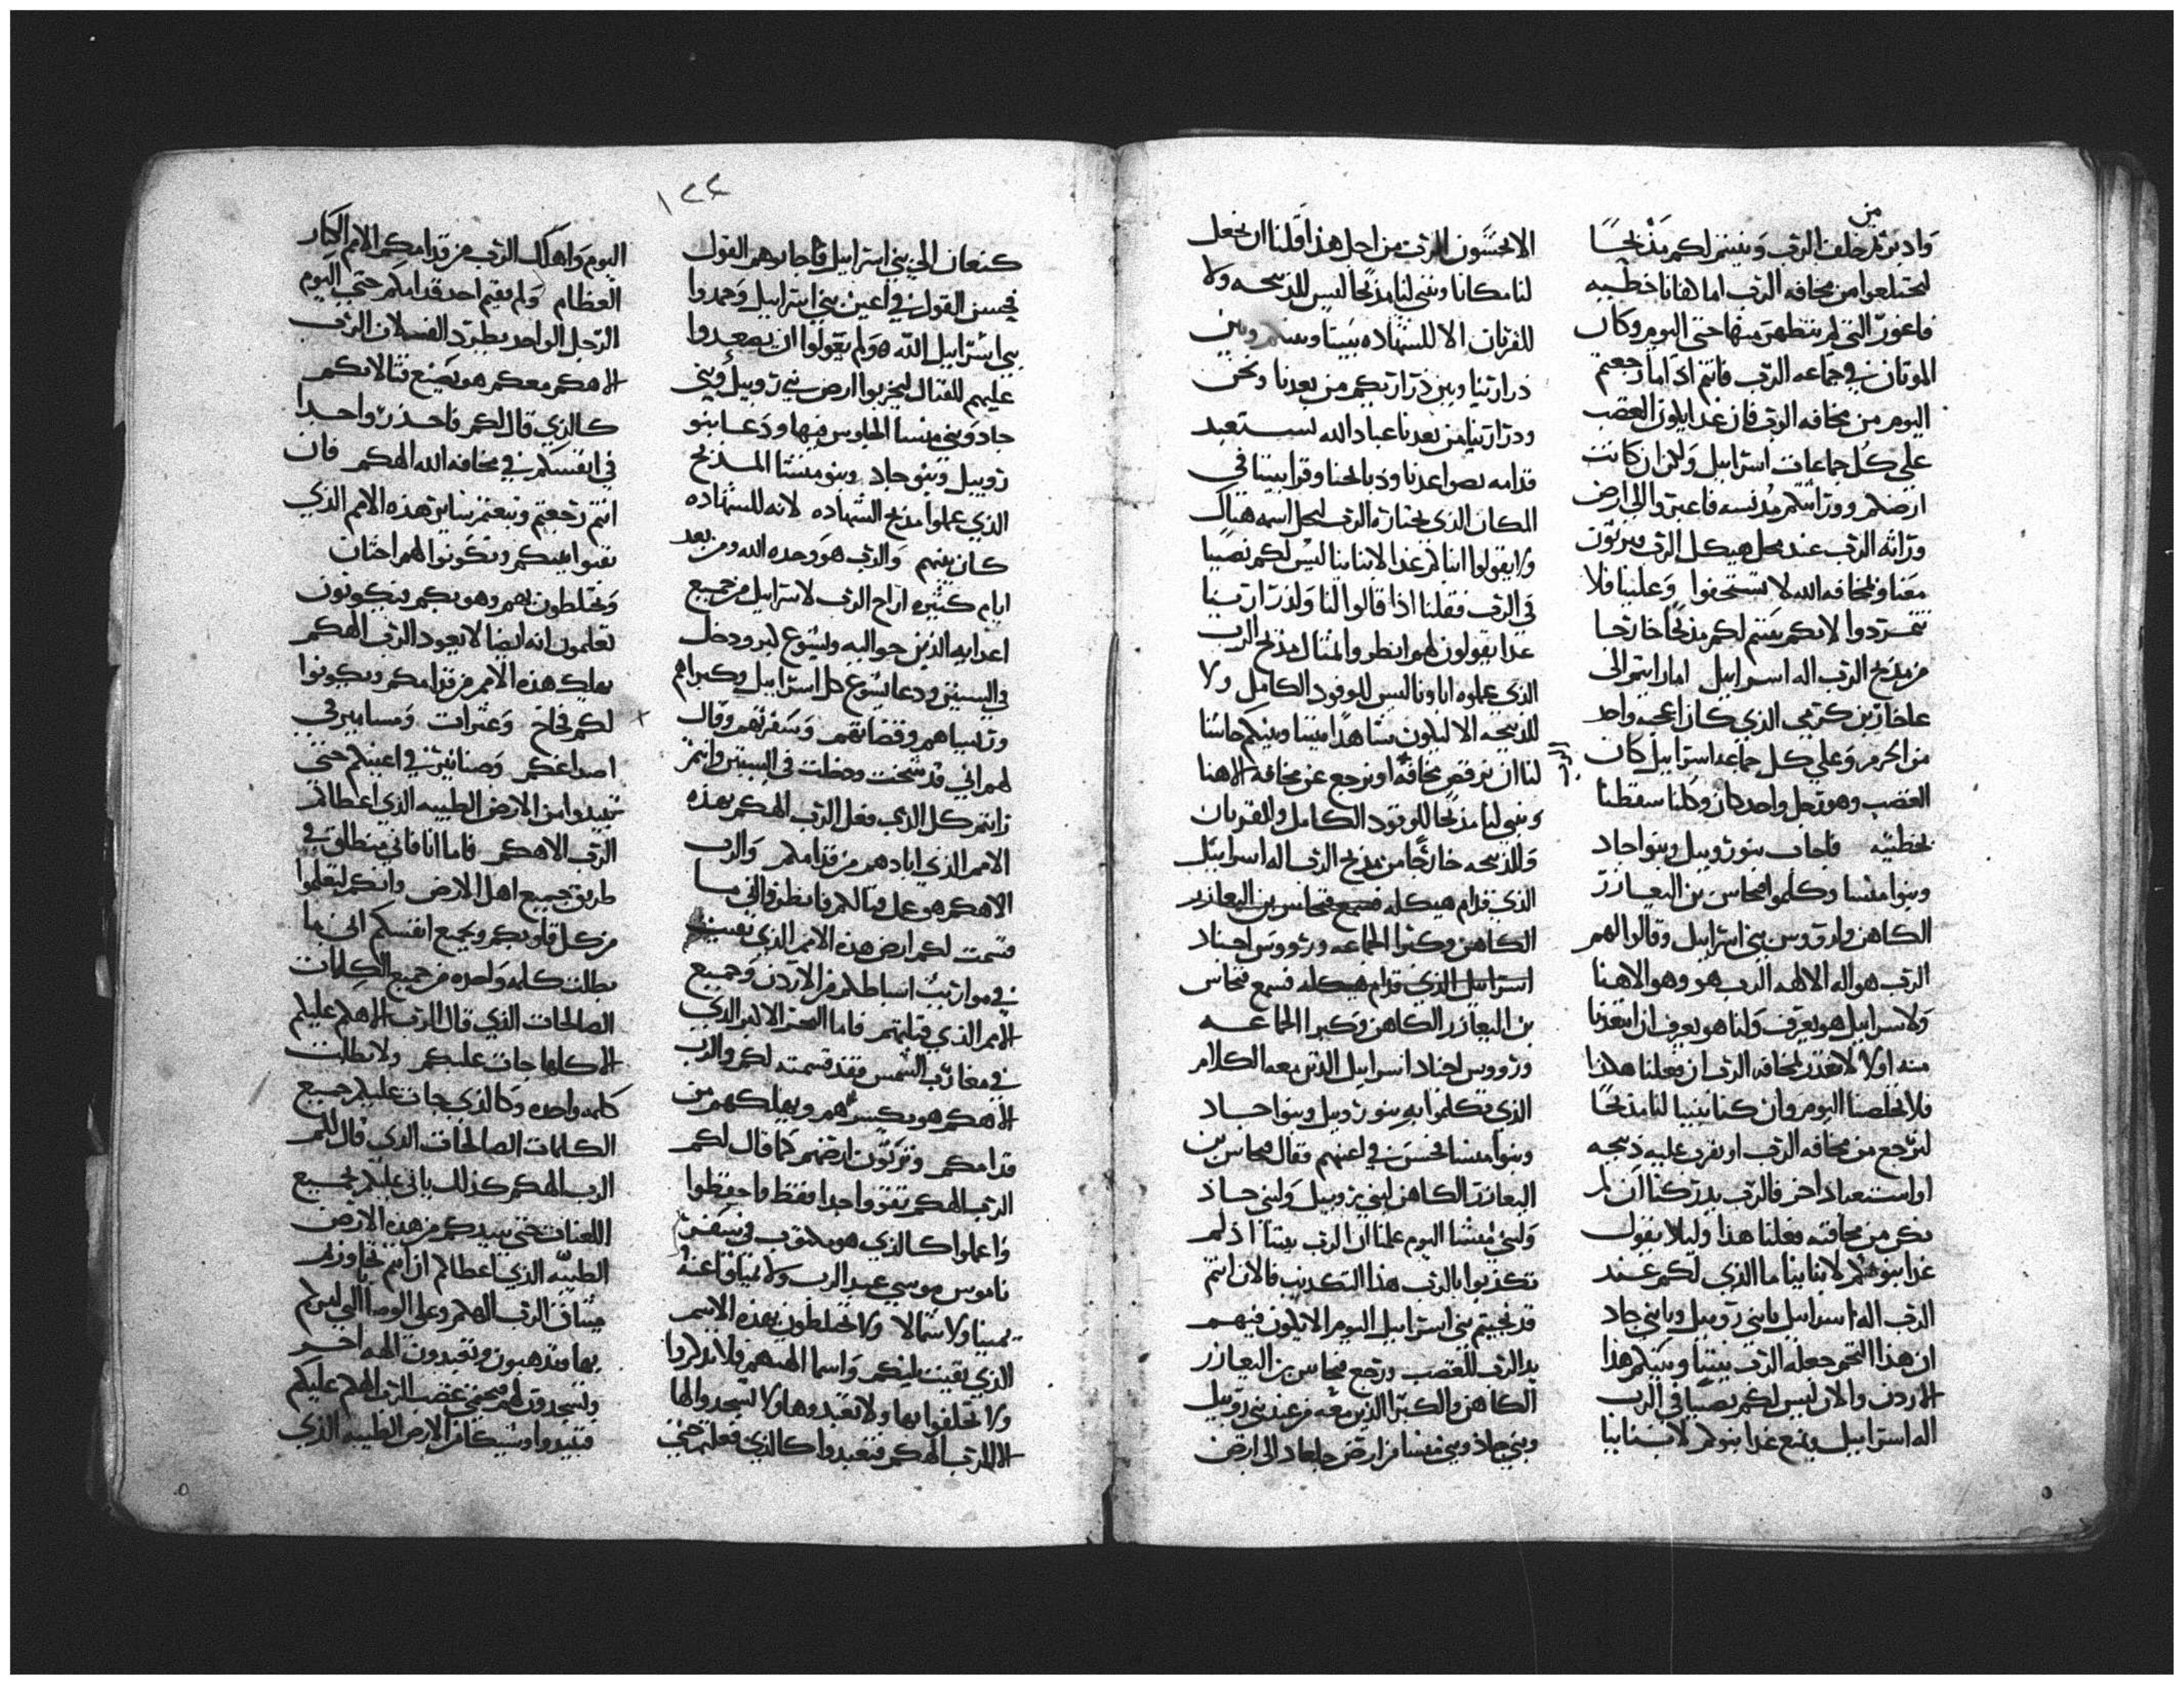 من
وادبرتم خلف الرب وبنيتم لكم مذبحًا
لتختلعوا من مخافه الرب اما كفانا خطيه
فاغور التي لم نتطهر منها حتى اليوم وكان
الموتان في جماعه الرب فانتم اذ اما رجعتم
اليوم من مخافه الرب فان غدا يكون الغضب
على كل جماعات اسراييل ولكن ان كانت
ارضكم ووراثتكم مدنسه فاعبروا الى ارض
وراثه الرب عند محل هيكل الرب فترثون
معنا ولمخافه الله لا تستخفوا وعلينا فلا
تتمردوا لانكم بنيتم لكم مذبحًا خارجا
من مذبح الرب اله اسراييل اما رايتم الى
عاخار بن كرمي الذي كان اعجبه واحد
من الحرم وعلى كل جماعه اسراييل كان
الغضب وهو رجل واحد كان وكلنا سقطنا
بخطيته فاجاب بنو روبيل وبنوا جاد
وبنوا منسا وكلموا فنحاس بن اليعازر
الكاهن ولروس بني اسراييل وقالوا لهم
الرب هو اله الالهه الرب هو وهو الاهنا
ولاسراييل هو يعرف ولنا هو يعرف ان ابتعدنا
منه اولا لانعدر لمخافه الرب ان فعلنا هكذا
فلا تخلصنا اليوم وان كنا بنينا لنا مذبحًا
لنرجع من مخافه الرب او نقرب عليه ذبيحه
او استنعباد اخر فالرب يدركنا ان لم
نكن من مخافته فعلنا هذا وليلا يقول
غدا بنوكم لابناينا ما الذي لكم عند
الرب اله اسراييل يابني روبيل ويابني جاد
ان هذا التخم جعله الرب بيننا وبينكم هذا
الاردن والان ليس لكم نصيبًا في الرب
اله اسراييل ويمنع غدا بنوكم لابناينا
الا يخشون الرب من اجل هذا قلنا ان نجعل
لنا مكانا ونبني لنا مذبحًا ليس للذبيحه ولا
للقربان الا للشهاده بيننا وبينكم وبين
ذرارتنا وبين ذرارتكم من بعدنا ونحن
وذرارتنا من بعدنا عباد الله نستعبد
قدامه بصواعدنا وذبايحنا وقرابيننا في
المكان الذي يختاره الرب ليحل اسمه هناك
ولا يقولوا ابناكم غدا لابناينا ليس لكم نصيبا
في الرب فقلنا اذا قالوا لنا ولذرارتنا
غدا يقولون لهم انظروا المثال مذبح الرب
الذي عملوه اباونا ليس للوقود الكامل ولا
للذبيحه الا ليكون شاهدًا بيننا وبينكم حاشا
لنا ان نرفض مخافة او نرجع عن مخافه الاهنا
ونبني لنا مذبحا للوقود الكامل وللقربان
وللذبيحه خارجًا من مذبح الرب اله اسراييل
الذي قدام هيكله فسمع فنحاس بن اليعازر
الكاهن وكبرا الجماعه وروس اجناد
اسراييل الذي قدام هيكله فسمع فنحاس
بن اليعازر الكاهن وكبرا الجماعه
وروس اجناد اسراييل الذين معه الكلام
الذي تكلموا به بنو روبيل وبنوا جاد
وبنوا منسا فحسن في اعينهم فقال فنحاس بن
اليعازر الكاهن لبني روبيل ولبني جاد
ولبني منسا اليوم علمنا ان الرب بيننا اذ لم
تكذبوا بالرب هذا التكذيب فالان انتم
قد نجيتم بني اسراييل اليوم الا يكون فيهم
يد الرب للغضب ورجع فنحاس بن اليعازر
الكاهن والكبرا الذين معه من عند بني روبيل
وبني جاد وبني منسا من ارض جلعاد الى ارض
١٢٤
كنعان الى بني اسراييل فاجابوهم القول
فحسن القول في اعين بني اسراييل وحمدوا
بني اسراييل الله ولم يقولوا ان يصعدوا
عليهم للقتال ليخربوا ارض بني روبيل وبني
جاد وبني منسا الجلوس فيها ودعا بنو
روبيل وبنو جاد وبنو منسا المذبح
الذي عملوا مذبح الشهاده لانه للشهاده
كان بينهم والرب هو وحده الله ومن بعد
ايام كثيره اراح الرب لاسراييل من جميع
اعدايه الذين حواليه ويشوع كبر ودخل
في السنين ودعا يشوع كل اسراييل وكبراهم
وروساهم وقضاتهم وسفرتهم وقال
لهم اني قد شخت ودخلت في السنين وانتم
رايتم كل الذي فعل الرب الهكم بهذه
الامم الذي ابادهم من قدامكم والرب
الاهكم هو عمل قتالكم فانظروا اني ما
قسمت لكم ارض هذه الامم الذي بقيت
في مواريث اسباطكم من الاردن وجميع
الامم الذي قتلتهم فاما البحر الاكبر الذي
في مغارب الشمس فقد قسمته لكم والرب
الاهكم هو يكسرهم ويهلكهم من
قدامكم وترثون ارضهم كما قال لكم
الرب الهكم تقوو اجدا فقط واحفظوا
واعملوا كالذي هو مكتوب في سفر
ناموس موسى عبد الرب ولا تميلوا عنه
يمينا ولا شمالا ولا تختلطون بهذه الامم
الذي بقيت ليكم واسما الهتهم فلا تذكروا
ولا تحلفوا بها ولا تعبدوها ولا تسجدوا لها
الا للرب الهكم فتعبدوا كالذي فعلتم حتى
اليوم واهلك الرب من قدامكم الامم الكبار
العظام ولم يقيم احد قدامكم حتى اليوم
الرجل الواحد يطرد الف لان الرب
الاهكم معكم هو يصنع قتالاتكم
كالذي قال لكم فاحذروا جدا
في انفسكم في مخافه الله الهكم فان
انتم رجعتم وتبعتم بساير هذه الامم الذي
بقيوا ليكم وتكونوا لهم اختان
وتختلطون بهم وهو بكم فتكونون
تعلمون انه ايضا لا يعود الرب الهكم
يهلك هذه الامم من قدامكم ويكونوا
لكم فخاخ وعثرات ومسامير في
اصداغكم وصنانير في اعينكم حتى
تبيدوا من الارض الطيبه الذي اعطاكم
الرب الاهكم فاما انا فاني منطلق في
طريق جميع اهل الارض وانكم لتعلموا
من كل قلوبكم وبجميع انفسكم انه ما
بطلت كلمه واحده من جميع الكلمات
الصالحات الذي قال الرب الاهكم عليكم
الا كلها جات عليكم ولا بطلت
كلمه واحده وكالذي جات عليكم جميع
الكلمات الصالحات الذي قال لكم
الرب الهكم كذلك ياتي عليكم بجميع
اللعنات حتى يبيدكم من هذه الارض
الطيبه الذي اعطاكم ان انتم تجاوزتم
ميثاق الرب الهكم وعلى الوصايا التي امركم
بها وتذهبون وتعبدون الهه اخر
وتسجدون لهم فيحمى غضب الرب الهكم عليكم
فتبيدوا وشيكا من الارض الطيبه الذي